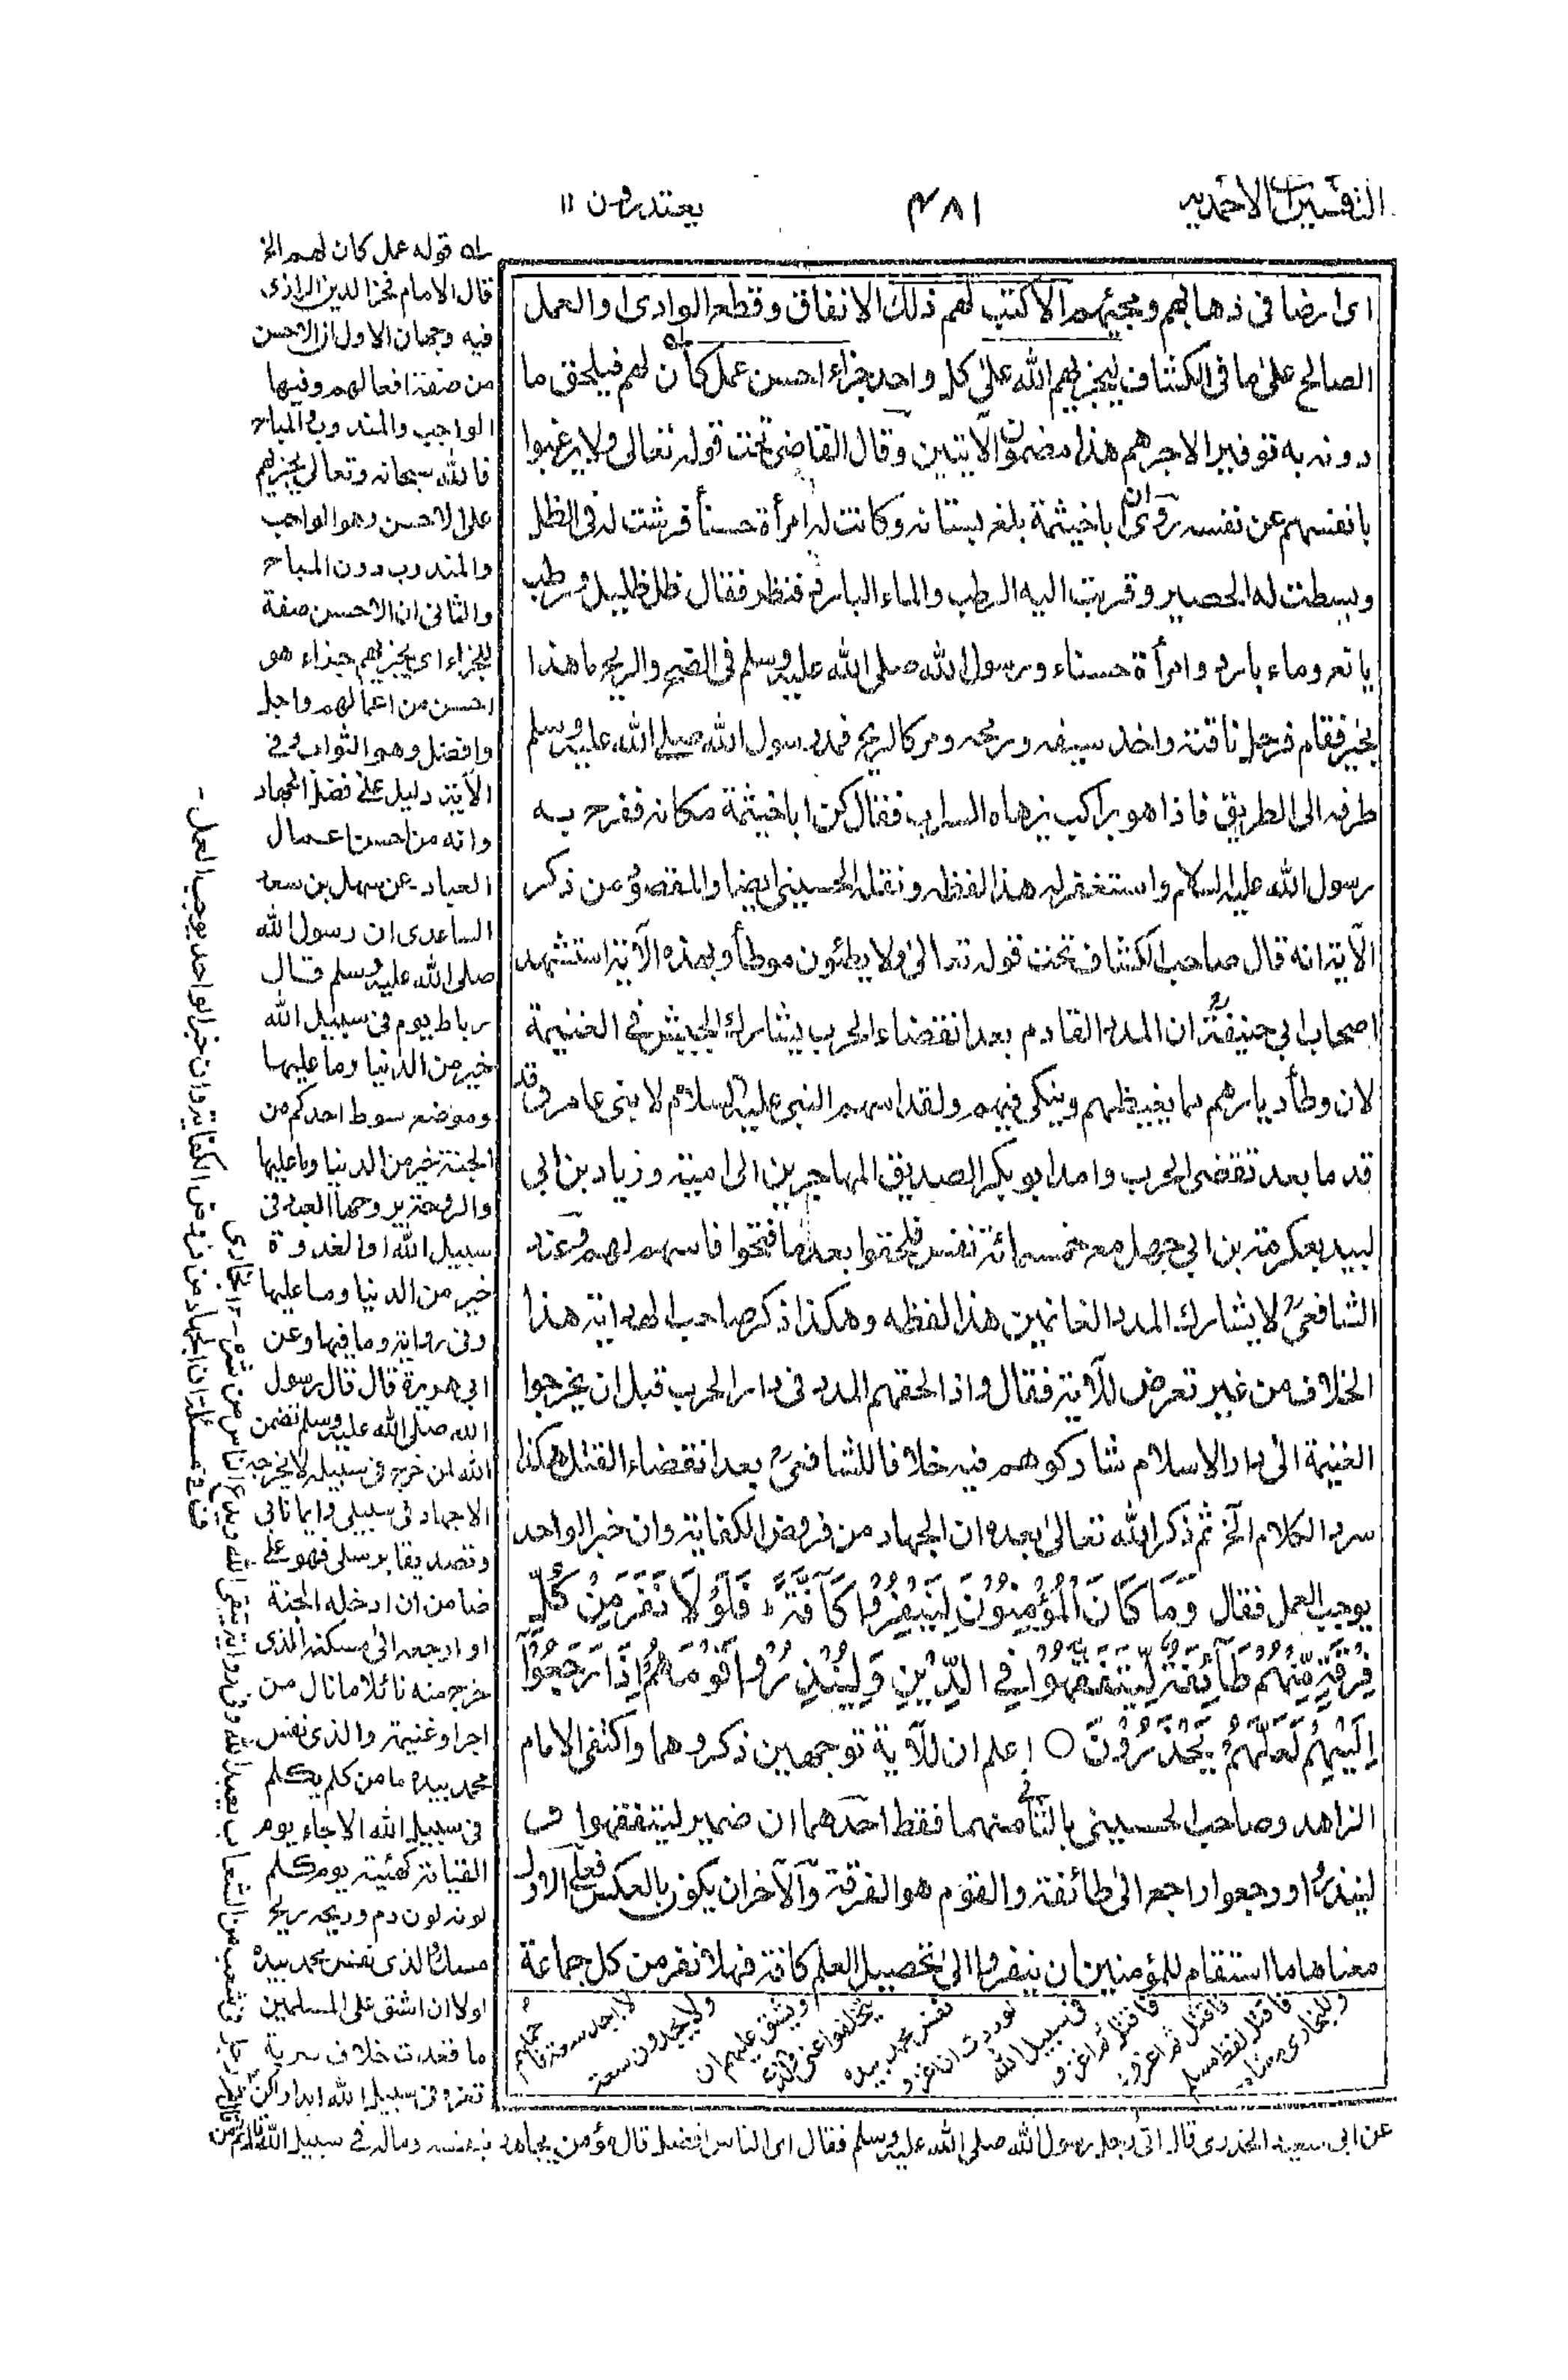 التفسيرات الاحمديه
٤٨١
يعتذرون ١١
اى ارضا فى ذهابهم ومجيئهم الا كتب لهم ذلك الانفاق وقطع الوادى او العمل
الصالح على ما فى الكشاف ليجزيهم الله على كل واحد جزاء احسن عمل كان لهم فيلحق ما
دونه به توفيرا لاجرهم هذا مضمون الآيتين وقال القاضى تحت قوله تعالى ولا يرغبوا
بانفسهم عن نفسه روى ان اباخيثمة بلغ بستانه وكانت له امرأة حسنأ فرشت له فى الظل
وبسطت له الحصير وقربت اليه الرطب والماء البارد فنظر فقال ظل ظليل ورطب
يانع وماء بارد وامرأة حسناء ورسول الله صلى الله عليه وسلم فى الضح والريح ما هذا
بخير فقام فرحل ناقته واخذ سيفه ورمحه ومر كالريح فمد رسول الله صلى الله عليه وسلم
طرفه الى الطريق فاذا هو براكب يزهاه السراب فقال كن اباخيثمة مكانه ففرح به
رسول الله عليه السلام واستغفر له هذا لفظه ونقله الحسينى ايضا والمقصود من ذكر
الآية انه قال صاحب الكشاف تحت قوله تعالى ولا يطئون موطأ وبهذه الآية استشهد
اصحاب ابى حنيفة ان المدد القادم بعد انقضاء الحرب يشارك الجيش فى الغنيمة
لان وطأ ديارهم مما يغيظهم وينكى فيهم ولقد اسهم النبى عليه السلام لابنى عامر وقد
قدما بعد تقضى الحرب وامد ابو بكر الصديق المهاجر بن ابى امية وزياد بن ابى
لبيد بعكرمة بن ابى جهل مع خمسمائة نفس فلحقوا بعد ما فتحوا فاسهم لهم وعند
الشافعى لا يشارك المدد الغانمين هذا لفظه وهكذا ذكر صاحب الهداية هذا
الخلاف من غير تعرض للآية فقال واذا لحقهم المدد فى دار الحرب قبل ان يخرجوا
الغنيمة الى دار الاسلام شاركوهم فيه خلافا للشافعى بعد انقضاء القتل هكذا
سرد الكلام الخ ثم ذكر الله تعالى بعده ان الجهاد من فروض الكفاية وان خبر الواحد
يوجب العمل فقال وَمَا كَانَ الْمُؤْمِنُوْنَ لِيَنْفِرُوْا كَآفَّةً ؕ فَلَوْ لَا نَفَرَ مِنْ كُلِّ
فِرْقَةٍ مِّنْهُمْ طَآئِفَةٌ لِّيَتَفَقَّهُوْا فِى الدِّيْنِ وَلِيُنْذِرُوْا قَوْمَهُمْ اِذَا رَجَعُوْٓا
اِلَيْهِمْ لَعَلَّهُمْ يَحْذَرُوْنَ ○ اعلم ان للآية توجيهين ذكروهما واكتفى الامام
الزاهد وصاحب الحسينى بالثانى منهما فقط احدهما ان ضمير ليتفقهوا و
لينذروا ورجعوا راجع الى طائفة والقوم هو الفرقة والآخر ان يكون بالعكس فعلى الاول
معناها ما استقام للمؤمنين ان ينفروا الى تحصيل العلم كافة فهلا نفر من كل جماعة
له قوله عمل كان لهم الخ
قال الامام فخر الدين الرازى
فيه وجهان الاول ان الاحسن
من صفة افعالهم وفيها
الواجب والمندوب والمباح
فالله سبحانه وتعالى يجزيهم
على الاحسن وهو الواجب
والمندوب دون المباح
والثانى ان الاحسن صفة
للجزاء اى يجزيهم جزاء هو
احسن من اعمالهم واجل
وافضل وهو الثواب وفى
الآية دليل على فضل الجهاد
وانه من احسن اعمال
العباد عن سهل بن سعد
الساعدى ان رسول الله
صلى الله عليه وسلم قال
رباط يوم فى سبيل الله
خير من الدنيا وما عليها
وموضع سوط احدكم من
الجنة خير من الدنيا وما عليها
والروحة يروحها العبد فى
سبيل الله او الغدوة
خير من الدنيا وما عليها
وفى رواية وما فيها وعن
ابى هريرة قال قال رسول
الله صلى الله عليه وسلم تضمن
الله لمن خرج فى سبيله لا يخرجه
الا جهاد فى سبيلى وايمانا بى
وتصديقا برسلى فهو على
ضامن ان ادخله الجنة
او ارجعه الى مسكنه الذى
خرج منه نائلا ما نال من
اجر او غنيمة والذى نفس
محمد بيده ما من كلم يكلم
فى سبيل الله الا جاء يوم
القيامة كهيئته يوم كلم
لونه لون دم وريحه ريح
مسك والذى نفس محمد بيده
لولا ان اشق على المسلمين
ما قعدت خلاف سرية
تغزو فى سبيل الله ابدا ولكن
لا اجد سعة فاحملهم
ولا يجدون سعة
ويشق عليهم ان
يتخلفوا عنى والذى
نفس محمد بيده
لوددت ان اغزو
فى سبيل الله
فاقتل ثم اغزو
فاقتل ثم اغزو
فاقتل لفظ مسلم
وللبخارى معناه
عن ابى سعيد الخدرى قال اتى رجل رسول الله صلى الله عليه وسلم فقال اى الناس افضل قال مؤمن يجاهد بنفسه وماله فى سبيل الله قال ثم من
قال ثم رجل فى شعب من الشعاب يعبد الله وفى رواية يتقى الله ويدع الناس من شره - ١٢ بخارى
ف فى مسئلة ان الجهاد من فروض الكفاية وان خبر الواحد يوجب العمل -